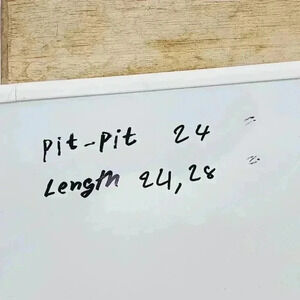 Pit-Pit 24
Length 24,28